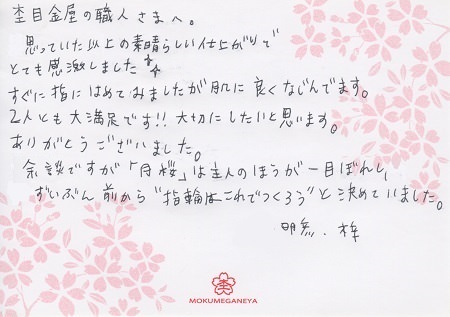 杢目金屋の職人さまへ。
思っていた以上の素晴らしい仕上がりで
とても感激しました
すぐに指にはめてみましたが肌に良くなじんでます。
2人とも大満足です!!大切にしたいと思います。
ありがとうございました。
余談ですが「月桜」は主人のほうが一目ぼれし、
ずいぶん前から"指輪はこれでつくろう"と決めていました。
梓
MOKUMEGANEYA